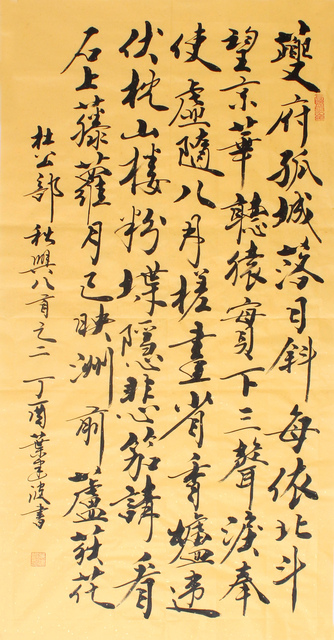 夔府孤城落日斜每依北斗
望京華聽猿實下三聲淚奉
使虛隨八月槎畫省香爐違
伏枕山樓粉堞隱悲笳請看
石上藤蘿月已映洲前蘆荻花
杜工部秋興八首之二丁酉葉建波書